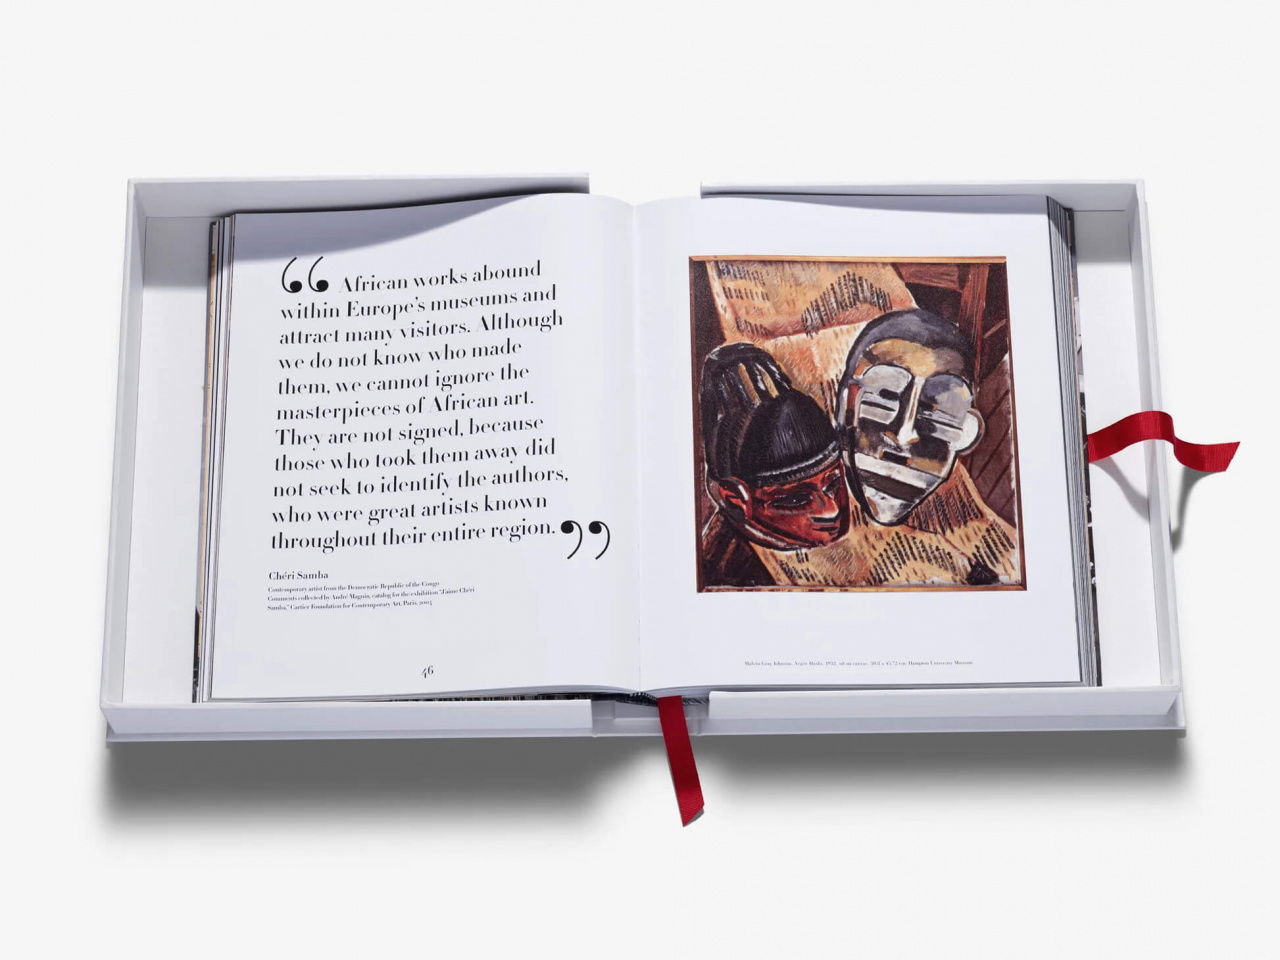 “ African works abound
within Europe’s museums and
attract many visitors. Although
we do not know who made
them, we cannot ignore the
masterpieces of African art.
They are not signed, because
those who took them away did
not seek to identify the authors,
who were great artists known
throughout their entire region. ”
Chéri Samba
Contemporary artist from the Democratic Republic of the Congo
Comments collected by André Magnin, catalog for the exhibition “J’aime Chéri
Samba,” Cartier Foundation for Contemporary Art, Paris, 2003
46
Malvin Gray Johnson, Negro Masks, 1932, oil on canvas, 50.8 x 45.72 cm. Hampton University Museum